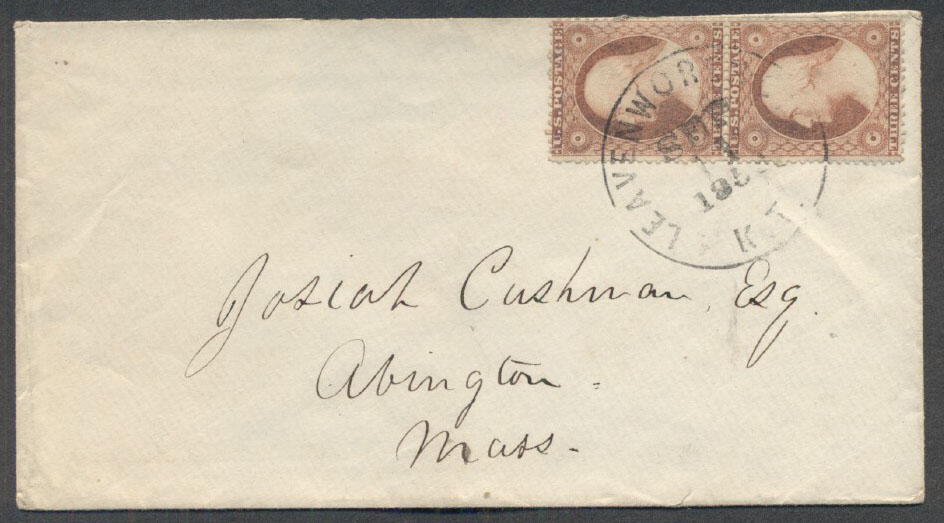 U.S. POSTAGE
THREE CENTS
U.S. POSTAGE
THREE CENTS
LEAVENWORTH
K.T.
Josiah Cushman, Esq.
Abington.
Mass.